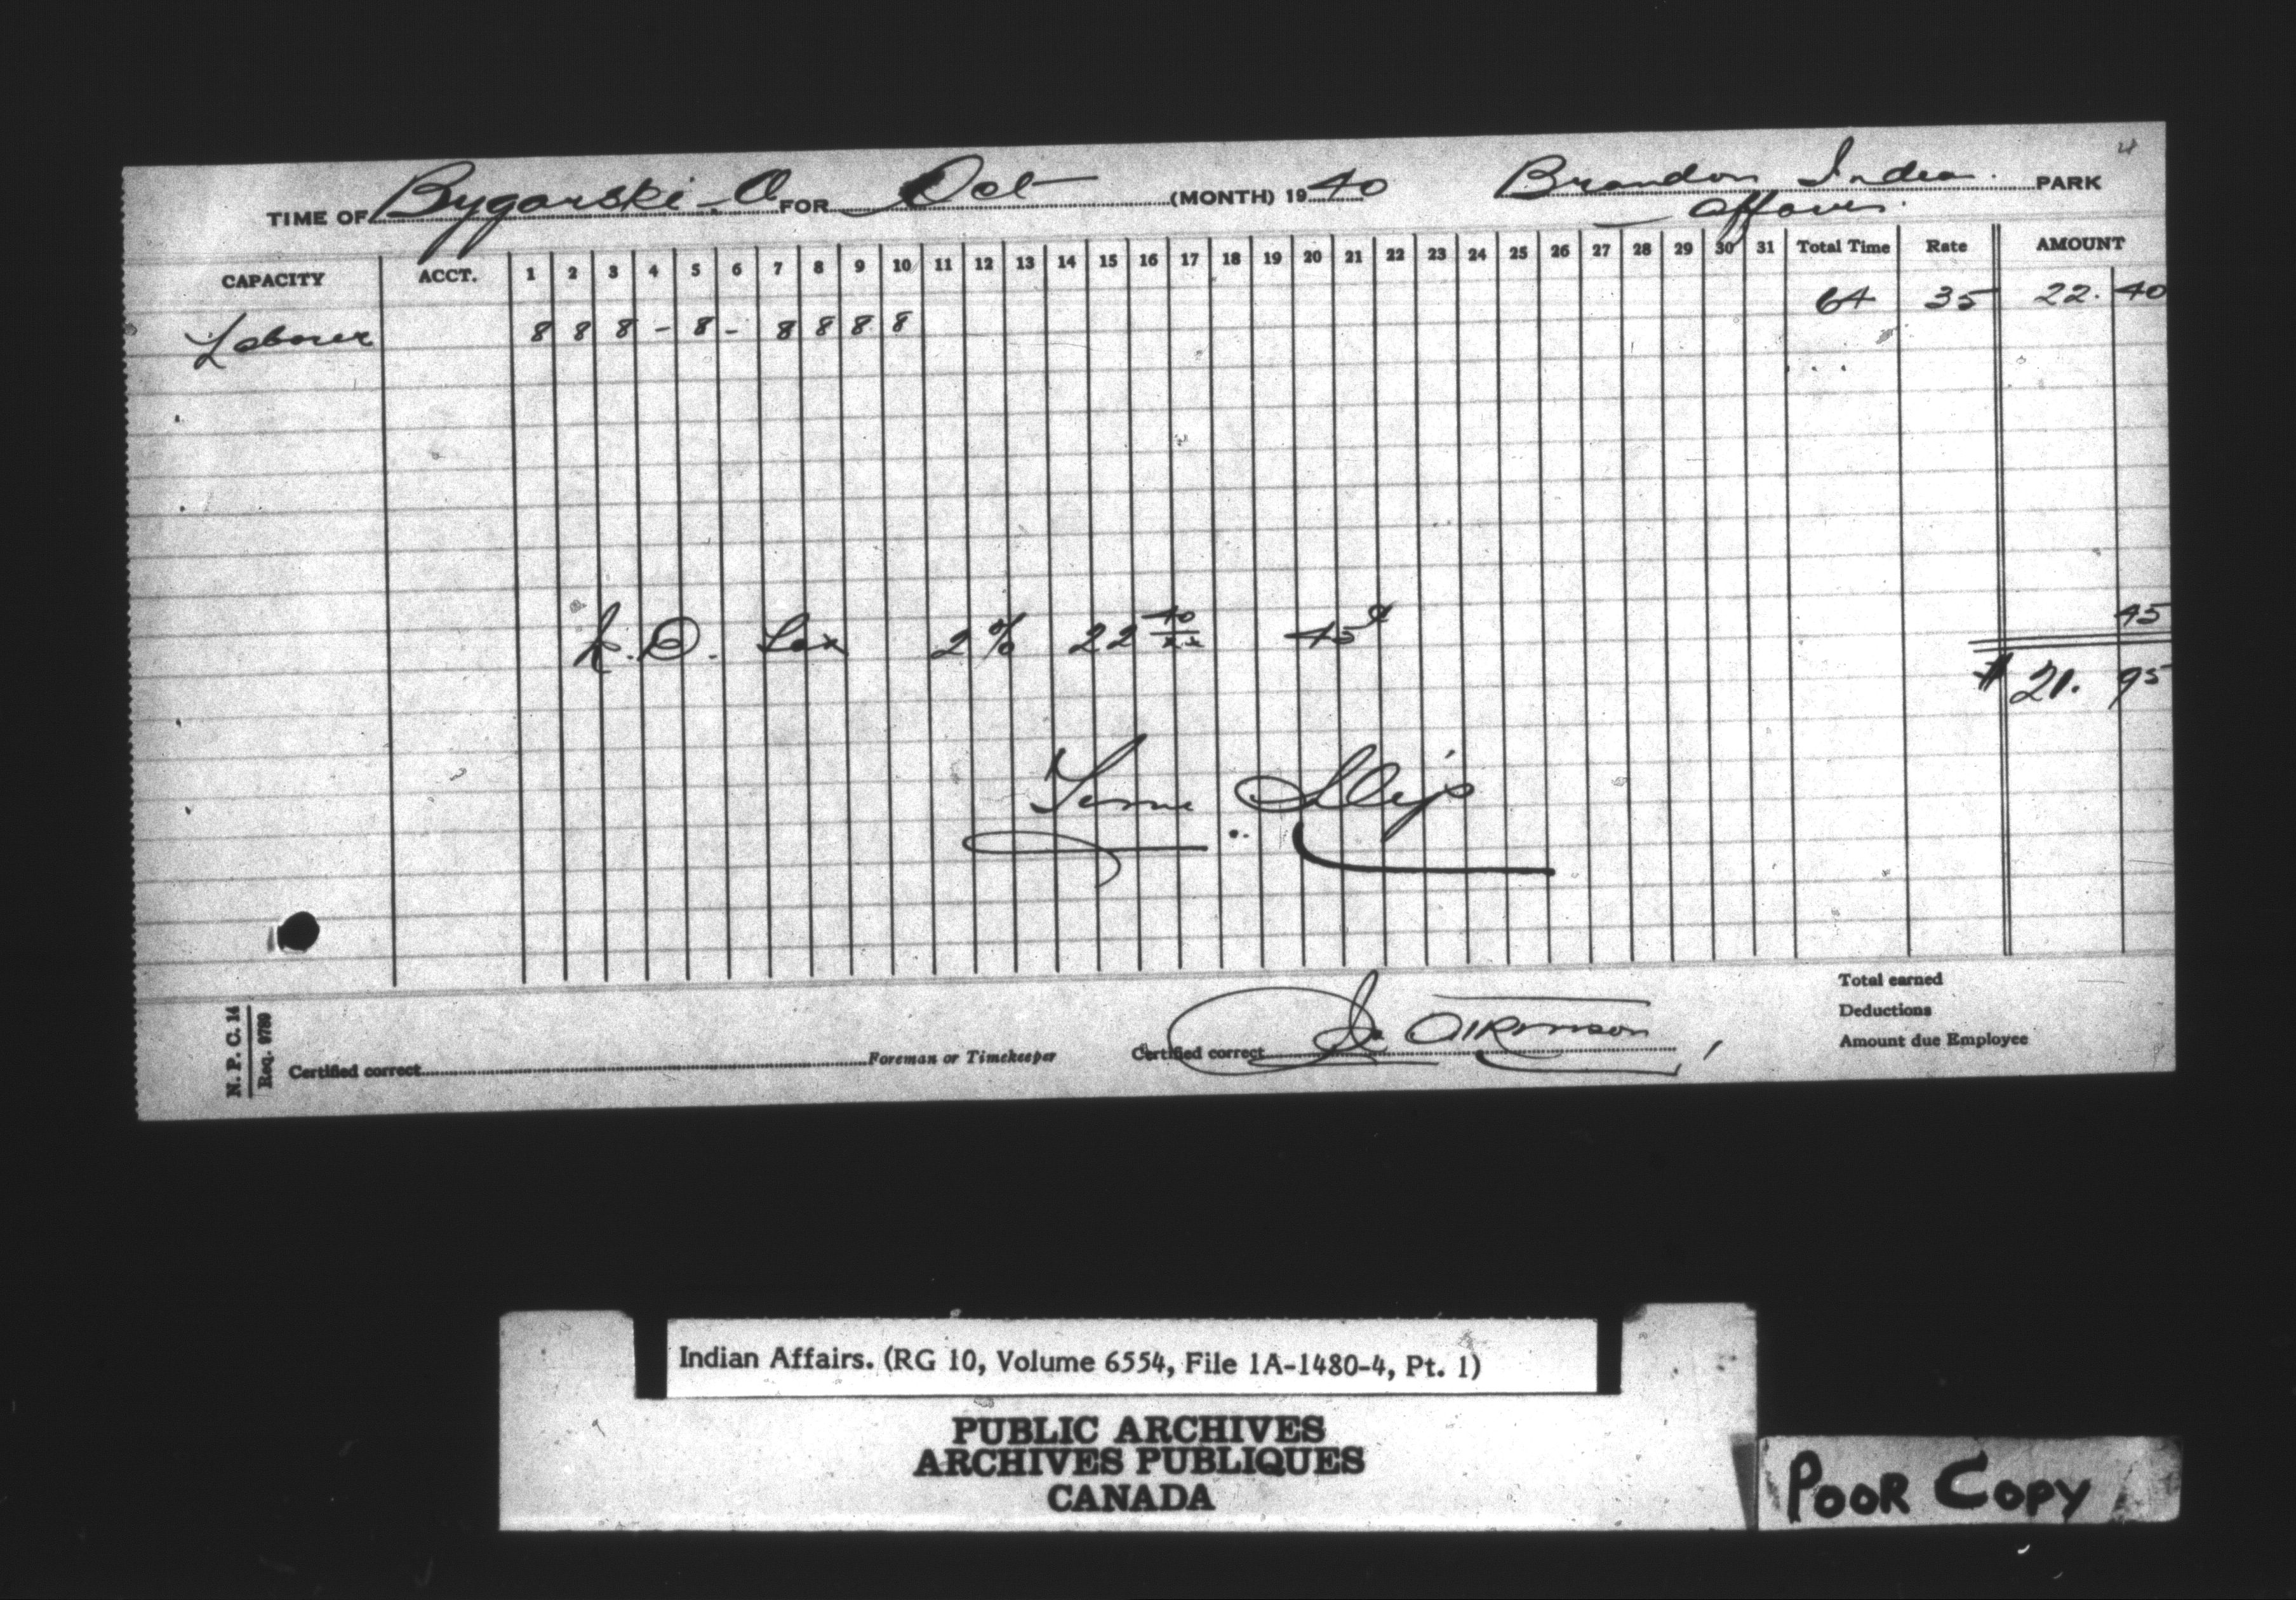 TIME OF Bygarski - O FOR Oct (MONTH) 1940 Brandon Indian PARK
Affairs
CAPACITY ACCT. 1 2 3 4 5 6 7 8 9 10 11 12 13 14 15 16 17 18 19 20 21 22 23 24 25 26 27 28 29 30 31 Total Time Rate AMOUNT
64 35 22. 40
Laborer 8 8 8 - 8 - 8 8 8 8
45
N.D. Tax 2% 22 40/xx 45¢
$ 21. 95
Time Slip
Total earned
Deductions
Amount due Employee
N. P. C. 14
Req. 9789
Certified correct Foreman or Timekeeper Certified correct Atkinson
Indian Affairs. (RG 10, Volume 6554, File 1A-1480-4, Pt. 1)
PUBLIC ARCHIVES
ARCHIVES PUBLIQUES
CANADA
POOR COPY